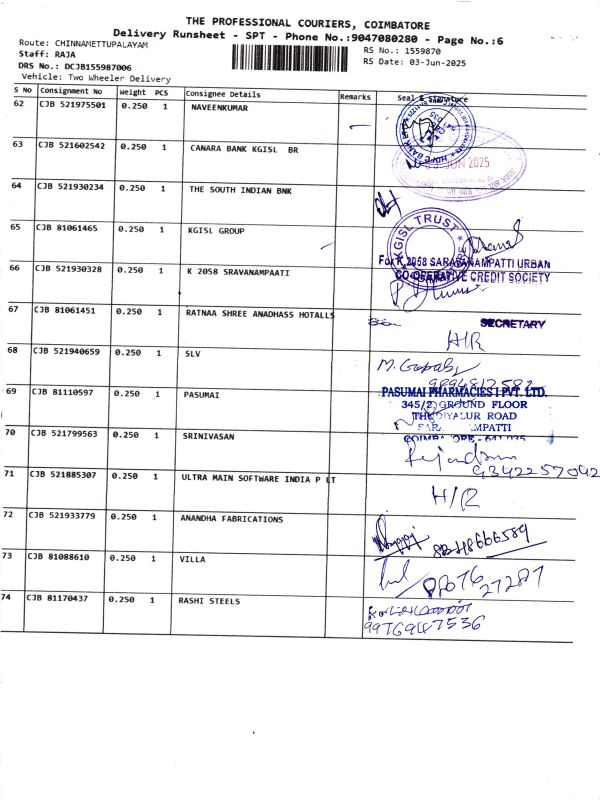 THE PROFESSIONAL COURIERS, COIMBATORE
Delivery Runsheet - SPT - Phone No.:9047080280 - Page No.:6
Route: CHINNAMETTUPALAYAM
RS No.: 1559870
Staff: RAJA
RS Date: 03-Jun-2025
DRS No.: DCJB155987006
Vehicle: Two Wheeler Delivery
S No Consignment No Weight PCS Consignee Details Remarks Seal & Signature
62 CJB 521975501 0.250 1 NAVEENKUMAR
63 CJB 521602542 0.250 1 CANARA BANK KGISL BR
JUN 2025
64 CJB 521930234 0.250 1 THE SOUTH INDIAN BNK
65 CJB 81061465 0.250 1 KGISL GROUP
KGISL TRUST
66 CJB 521930328 0.250 1 K 2058 SRAVANAMPAATI
For K 2058 SARAVANAMPATTI URBAN
CO-OPERATIVE CREDIT SOCIETY
67 CJB 81061451 0.250 1 RATNAA SHREE ANADHASS HOTALLS
SECRETARY
H/R
68 CJB 521940659 0.250 1 SLV
M. Gopal
9894812582
69 CJB 81110597 0.250 1 PASUMAI
PASUMAI PHARMACIES I PVT. LTD.
345/2, GROUND FLOOR
THUDIYALUR ROAD
70 CJB 521799563 0.250 1 SRINIVASAN
9342257042
71 CJB 521885307 0.250 1 ULTRA MAIN SOFTWARE INDIA P LT
H/R
72 CJB 521933779 0.250 1 ANANDHA FABRICATIONS
73 CJB 81088610 0.250 1 VILLA
74 CJB 81170437 0.250 1 RASHI STEELS
9976947536